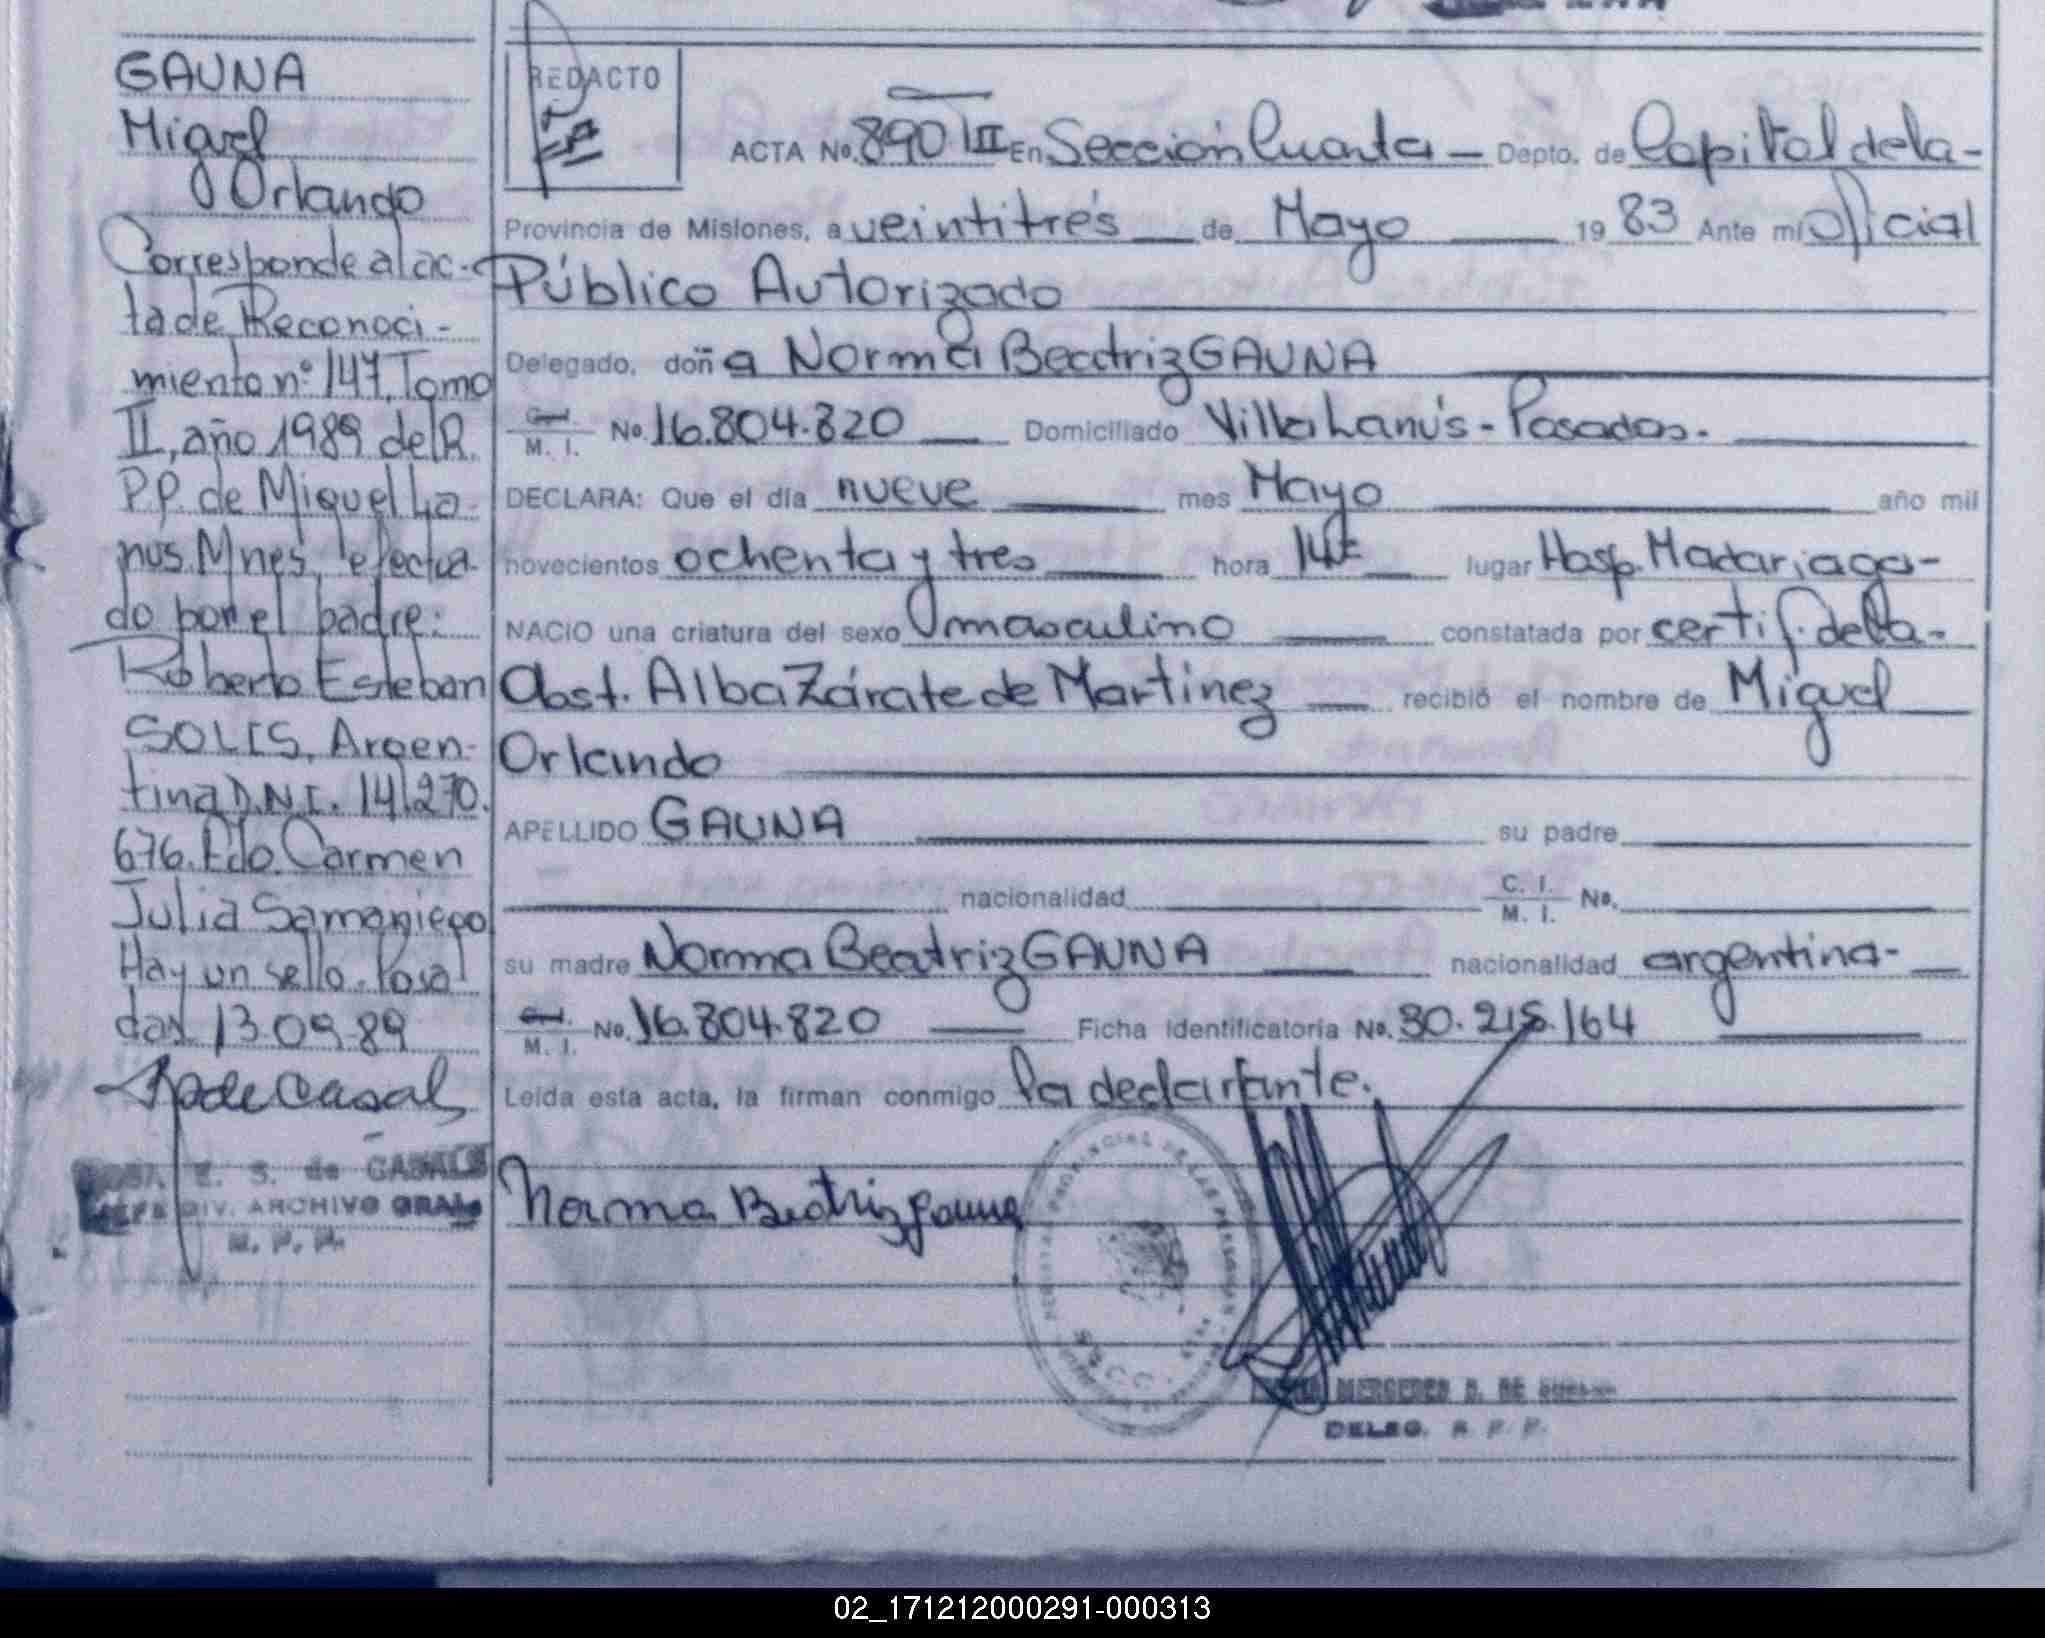 GAUNA
Miguel
Orlando
Corresponde al ac-
ta de Reconoci-
miento nº 147, Tomo
II, año 1989 del R.
P.P. de Miguel La-
nus. Mnes, efectua-
do por el padre:
Roberto Esteban
SOLIS, Argen-
tina D.N.I. 14.270.
676. Fdo. Carmen
Julia Samaniego
Hay un sello. Posa
das 13.09.89
R de Casal
E. S. de
DIV. ARCHIVO GRAL
REDACTO
ACTA No. 890 TII En Sección Cuarta — Depto. de Capital de la-
Provincia de Misiones, a veintitrés de Mayo 19 83 Ante mi Oficial
Público Autorizado
Delegado, doña Norma Beatriz GAUNA
C.I. M. I. No. 16.804.820 Domiciliado Villa Lanús - Posadas.
DECLARA: Que el día nueve mes Mayo año mil
novecientos ochenta y tres hora 14 lugar Hosp. Madariaga-
NACIO una criatura del sexo masculino constatada por certif. de la-
Obst. Alba Zárate de Martinez recibió el nombre de Miguel
Orlando
APELLIDO GAUNA su padre
nacionalidad C. I. M. I. No.
su madre Norma Beatriz GAUNA nacionalidad argentina-
C.I. M. I. No. 16.804.820 Ficha identificatoria No. 30.215.164
Leída esta acta, la firman conmigo la declarante.
Norma Beatriz Gauna
MERCEDES D. DE
DELEG. R. P. P.
02_171212000291-000313